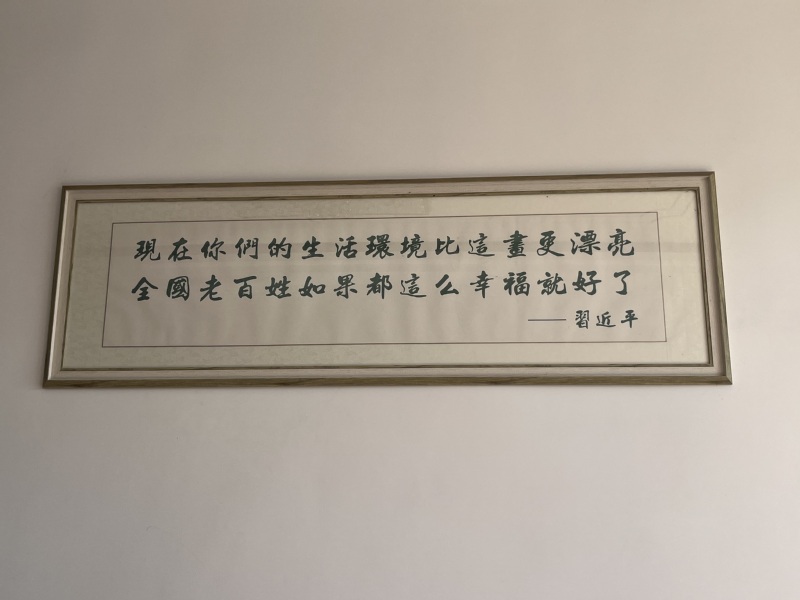 現在你們的生活環境比這畫更漂亮
全國老百姓如果都這么幸福就好了
——習近平